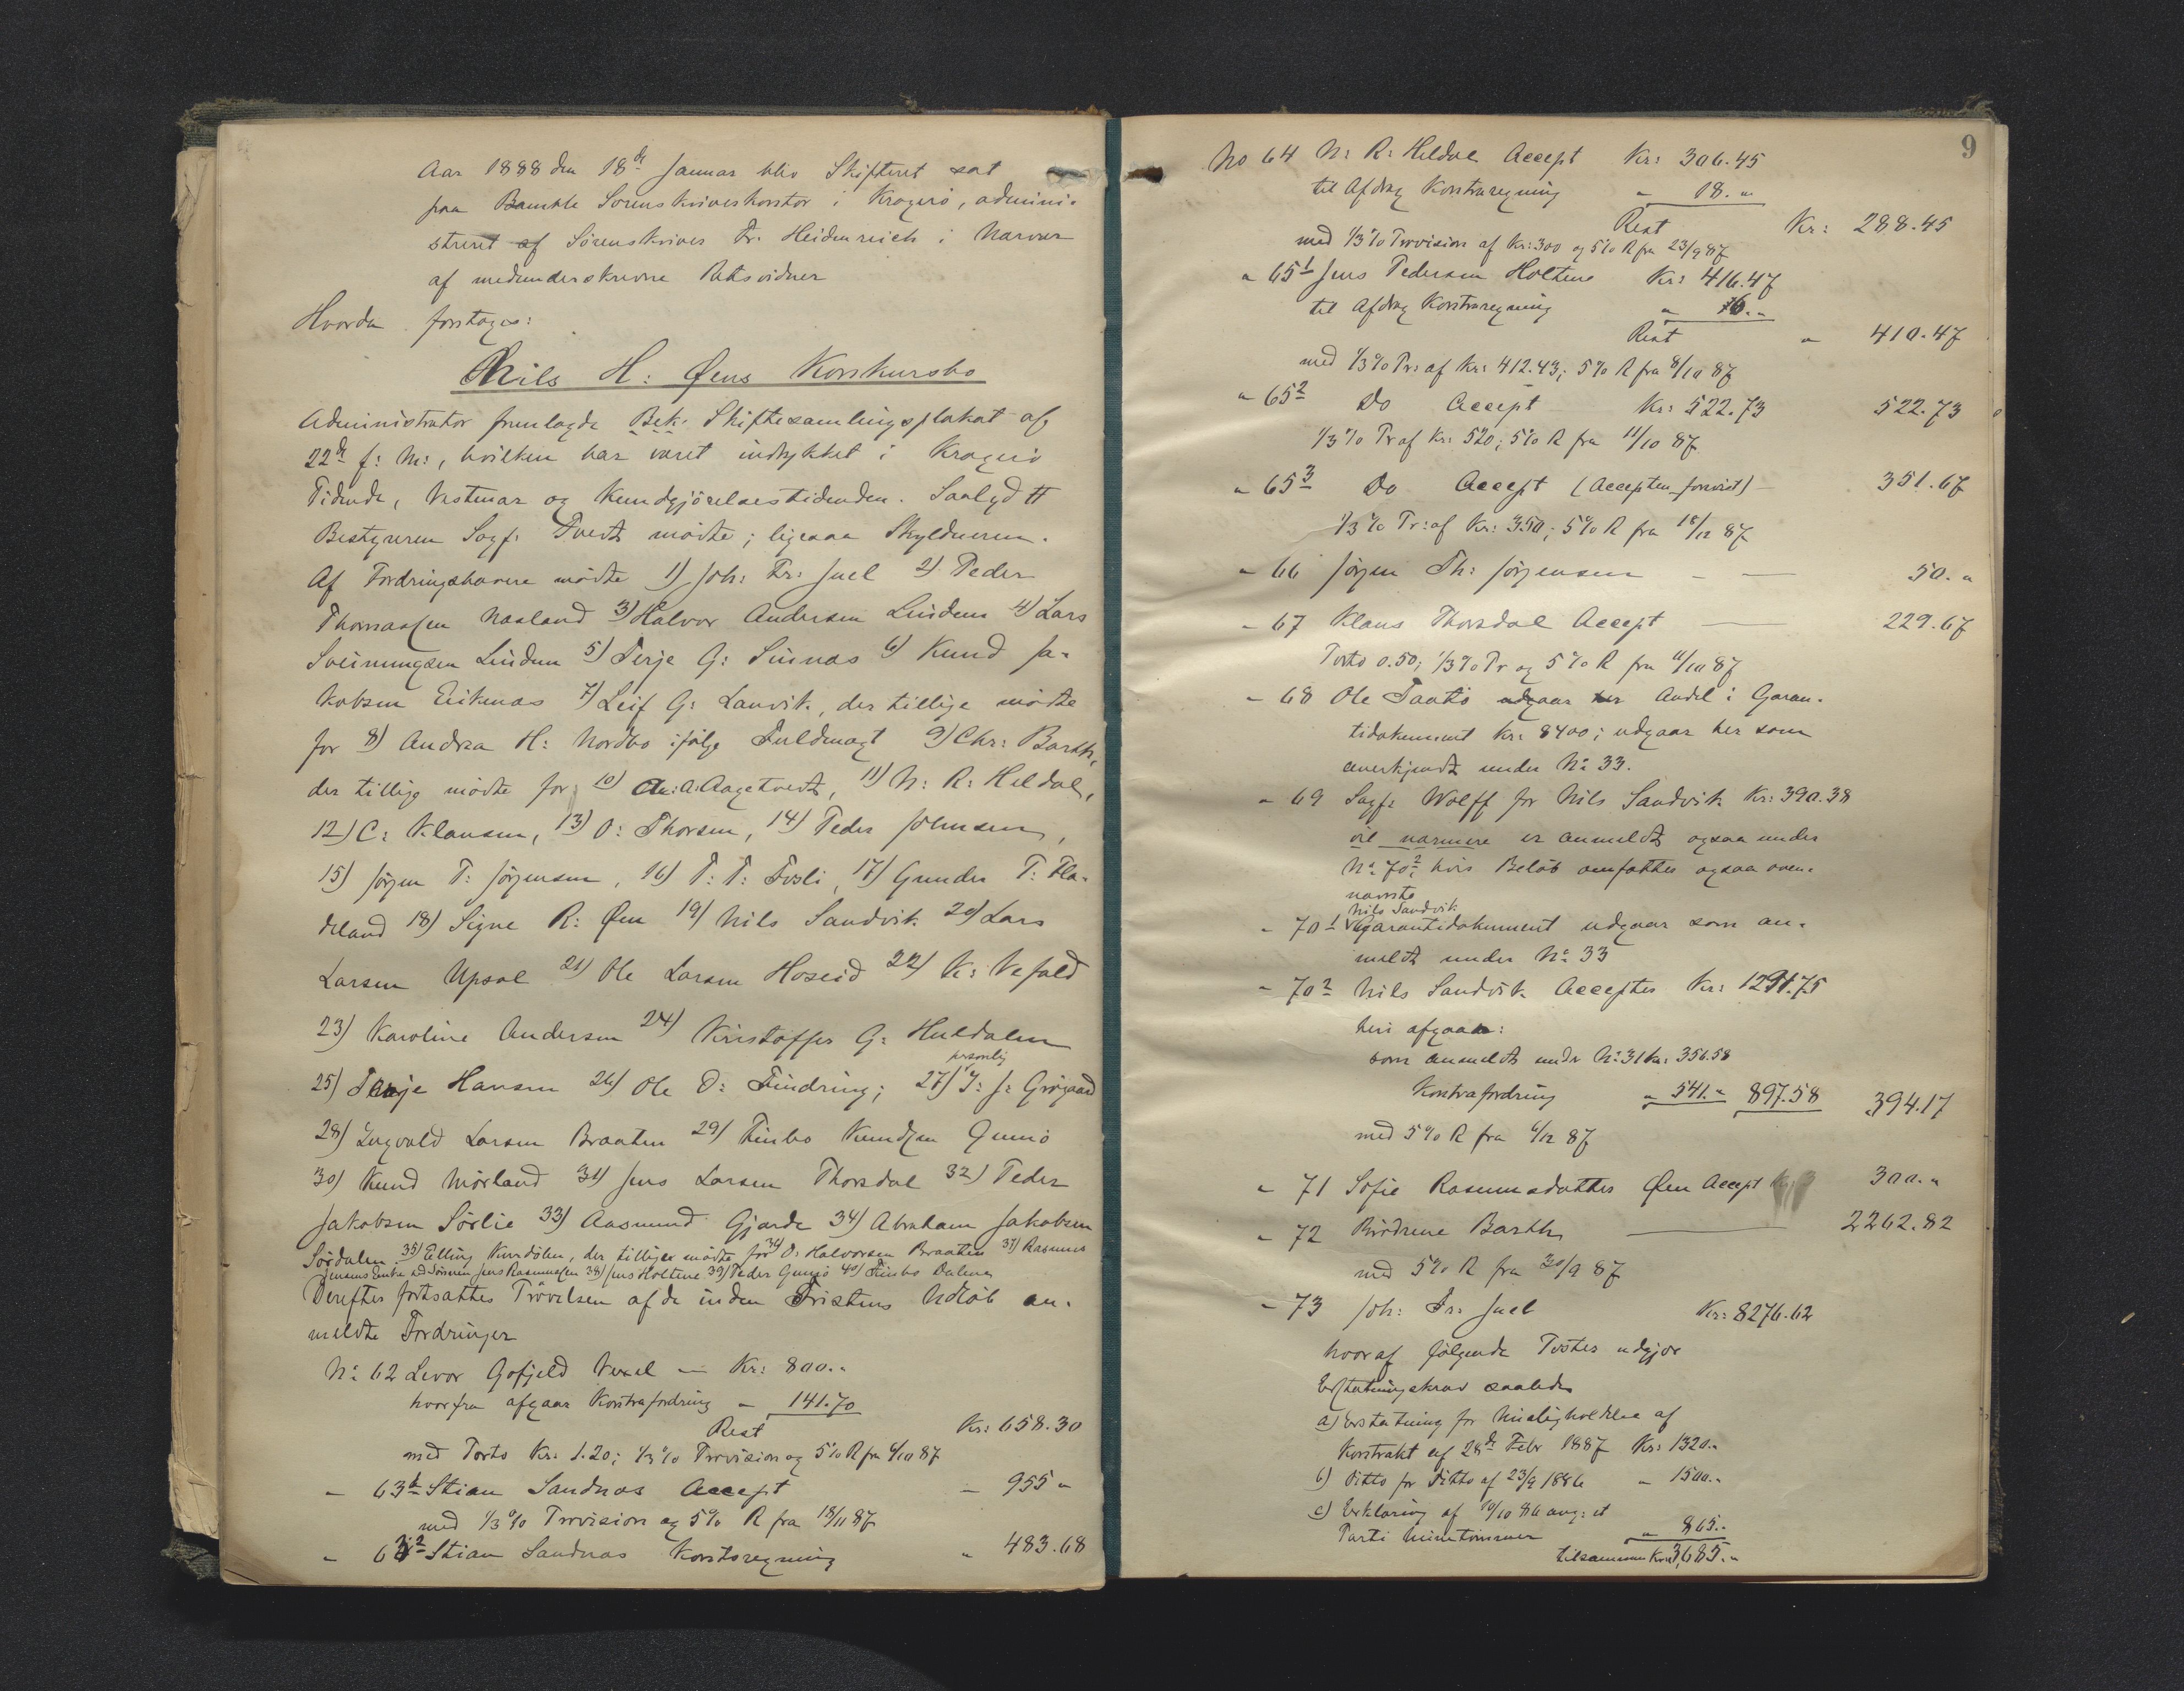 Aar 1888 den 18de Januar blev Skifteret sat
paa Bamble Sorenskriverkontor i Kragerø, admini-
streret af Sörenskriver Fr. Heidenreich i Nærvær
af medunderskrevne Retsvidner
Hvorda foretages:
Nils H: Øens Konkursbo
Administrator fremlagde Bek. Skiftesamlingsplakat af
22de f: M:, hvilken har været indrykket i Kragerö
Tidende, Vestmar og Kundgjörelsestidenden. Saalydtt
Bestyreren Sagf. Tvedt mödte; ligesaa Skyldneren.
Af Fordringshavere mödte 1) Joh: Fr: Juel 2) Peder
Thomassen Naaland 3) Halvor Andersen Lindem 4) Lars
Sveinungsen Lindem 5) Terje G: Sinnas 6) Knud Ja-
kobsen Eikenæs 7) Leif G: Lanvik, der tillige mödte
for 8) Andrea H: Nordbo ifölge Fuldmagt 9) Chr: Barth,
der tillige mödte for 10) A: Aagetvedt, 11) N: R: Heldal,
12) C: Klausen, 13) O: Thorsen, 14) Peder Johnsen,
15) Jörgen T: Jörgensen, 16) T: T: Fosli, 17) Gunder T: Fla-
deland 18) Signe R: Øen 19) Nils Sandvik 20) Lars
Larsen Upsal 21) Ole Larsen Hoseid 22) K: Vefald
23) Karoline Andersen 24) Kristoffer G: Huldalen
personlig
25) Terje Hansen 26) Ole O: Findring; 27) J: J: Grögaard
28) Ingvald Larsen Braaten 29) Timbo Knudsen Gumö
30) Knud Mörland 31) Jens Larsen Thorsdal 32) Peder
Jakobsen Sörlie 33) Aasmund Gjarde 34) Abraham Jakobsen
Sördalen 35) Elling Kurdölen, der tilliger mödte for 36) O: Halvorsen Braaten 37) Rasmus
Jensens Enke ved Sönnen Jens Rasmussen 38) Jens Holtene 39) Peder Gumö 40) Timbo Dalene
Derefter fortsattes Prövelsen af de inden Fristens Udlöb an-
meldte Fordringer
No 62 Levor Gofjeld Vexel — Kr: 800.-
hvorfra afgaar Kontrafordring " 141.70
Rest Kr: 658.30
med Porto Kr. 1.20; 1/3% Provision og 5% R fra 4/10 87
" 63 1 Stian Sandnæs Accept " 955 "
med 1/3% Provision og 5% R fra 18/11 87
" 63 2 Stian Sandnæs Kontoregning " 483.68
9
No 64 N: R: Heldal Accept Kr: 306.45
til Afdrag Kontraregning " 18. "
Rest Kr: 288.45
med 1/3% Provision af Kr: 300 og 5% R fra 23/9 87
" 65 1 Jens Pedersen Holtene Kr: 416.47
til Afdrag Kontraregning " 6. "
Rest " 410.47
med 1/3% Pr: af Kr: 412.43; 5% R fra 8/10 87
" 65 2 Do Accept Kr: 522.73 522.73
1/3% Pr af Kr: 520; 5% R fra 11/10 87
" 65 3 Do Accept (Accepten forevist) — 351.67
1/3% Pr: af Kr: 350; 5% R fra 18/12 87
" 66 Jörgen Th: Jörgensen — 50. "
" 67 Klaus Thorsdal Accept — 229.67
Porto 0.50; 1/3% Pr og 5% R fra 11/10 87
" 68 Ole Taatö udgaar her Andel i Garan-
tidokument Kr: 8400; udgaar her som
anerkjendt under No 33.
" 69 Sagf: Wolff for Nils Sandvik Kr: 390.38
vil nærmere er anmeldt ogsaa under
No 70 2 hvis Belöb omfattes ogsaa oven-
nævnte
Nils Sandvik
" 70 1 Garantidokument udgaar som an-
meldt under No 33
" 70 2 Nils Sandvik Accepter Kr: 1291.75
heri afgaar:
som anmeldt under No 31 Kr: 356.58
Kontrafordring " 541. " 897.58 394.17
med 5% R fra 6/12 87
" 71 Sofie Rasmusdatter Øen Accept 300. "
" 72 Brödrene Barth — 2262.82
med 5% R fra 30/9 87
" 73 Joh: Fr: Juel Kr: 8276.62
hvoraf fölgende Poster udgjör
Erstatningskrav saaledes
a) Erstatning for Misligholdelse af
Kontrakt af 28de Febr 1887 Kr: 1320.-
b) Ditto for Ditto af 23/9 1886 " 1500.-
c) Erklæring af 10/10 86 ang: et
Parti Minetömmer " 865.-
tilsammen Kr: 3685. "